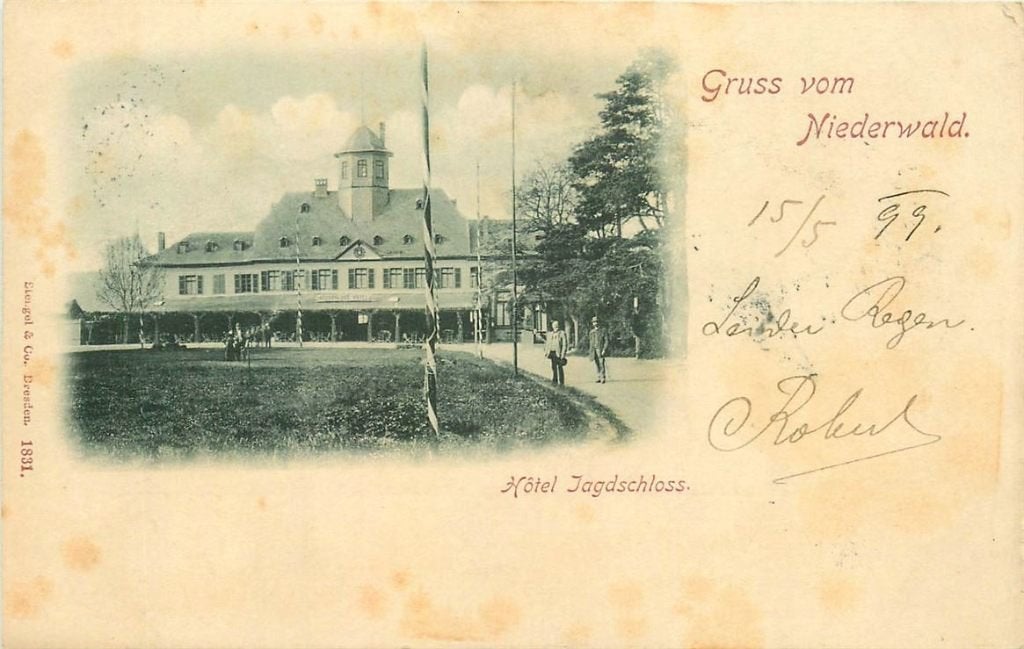 Gruss vom
Niederwald.
15/5 99.
Leider Regen.
Robert
Hôtel Jagdschloss.
Stengel & Co. Dresden. 1831.